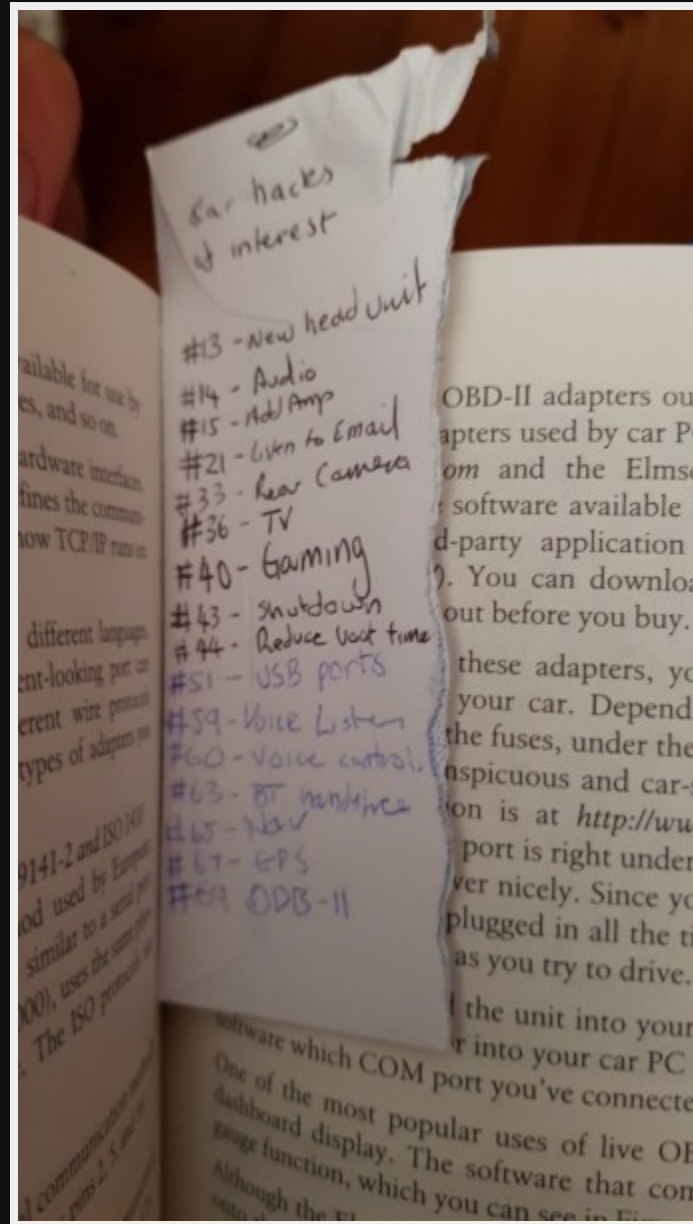 car hacks
of interest
#13 - New head unit
#14 - Audio
#15 - Add Amp
#21 - Listen to Email
#33 - Rear Camera
#36 - TV
#40 - Gaming
#43 - shutdown
#44 - Reduce boot time
#51 - USB ports
#59 - Voice Listen
#60 - Voice control.
#63 - BT handsfree
#65 - Nav
#67 - GPS
#69 ODB-II
ailable for use by
es, and so on.
ardware interfaces
fines the commun-
now TCP/IP runs on
different languages.
ent-looking port can
erent wire protocols
types of adapters you
9141-2 and ISO 1430
od used by European
similar to a serial port
000), uses the same
. The ISO protocols
l communication method
pins 2, 5,
OBD-II adapters ou
apters used by car P
om and the Elmsc
software available
d-party application
). You can downloa
out before you buy.
these adapters, yo
your car. Depend
the fuses, under the
nspicuous and car-s
ion is at http://ww
port is right under
ver nicely. Since yo
plugged in all the ti
as you try to drive.
the unit into your
r into your car PC
software which COM port you've connecte
One of the most popular uses of live OB
dashboard display. The software that com
gauge function, which you can see in
Although the
onto